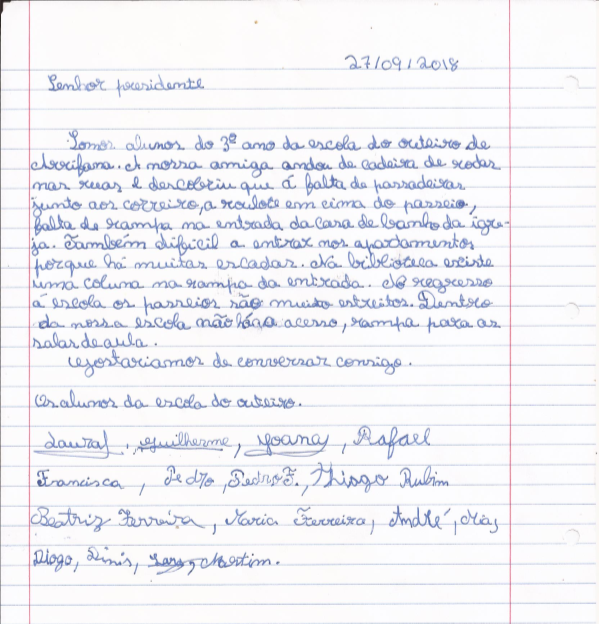 27/09/2018
Senhor presidente
Somos alunos do 3º ano da escola do outeiro de
Arrifana. A nossa amiga andou de cadeira de rodas
nas ruas e descobriu que á falta de passadeiras
junto aos correiro, a roulote em cima do passeio,
falta de rampa na entrada da casa de banho da igre-
ja. Também dificil a entrar nos apartamentos
porque há muitas escadas. Na biblioteca existe
uma coluna na rampa da entrada. No regresso
á escola os passeios são muito estreitos. Dentro
da nossa escola não há acesso, rampa para as
salas de aula.
Gostariamos de conversar consigo.
Os alunos da escola do outeiro.
Laura, Guilherme, Joana, Rafael
Francisca, Pedro, Pedro F., Thiago Rubim
Beatriz Ferreira, Maria Ferreira, André,
Diogo, Dinis, Martim.